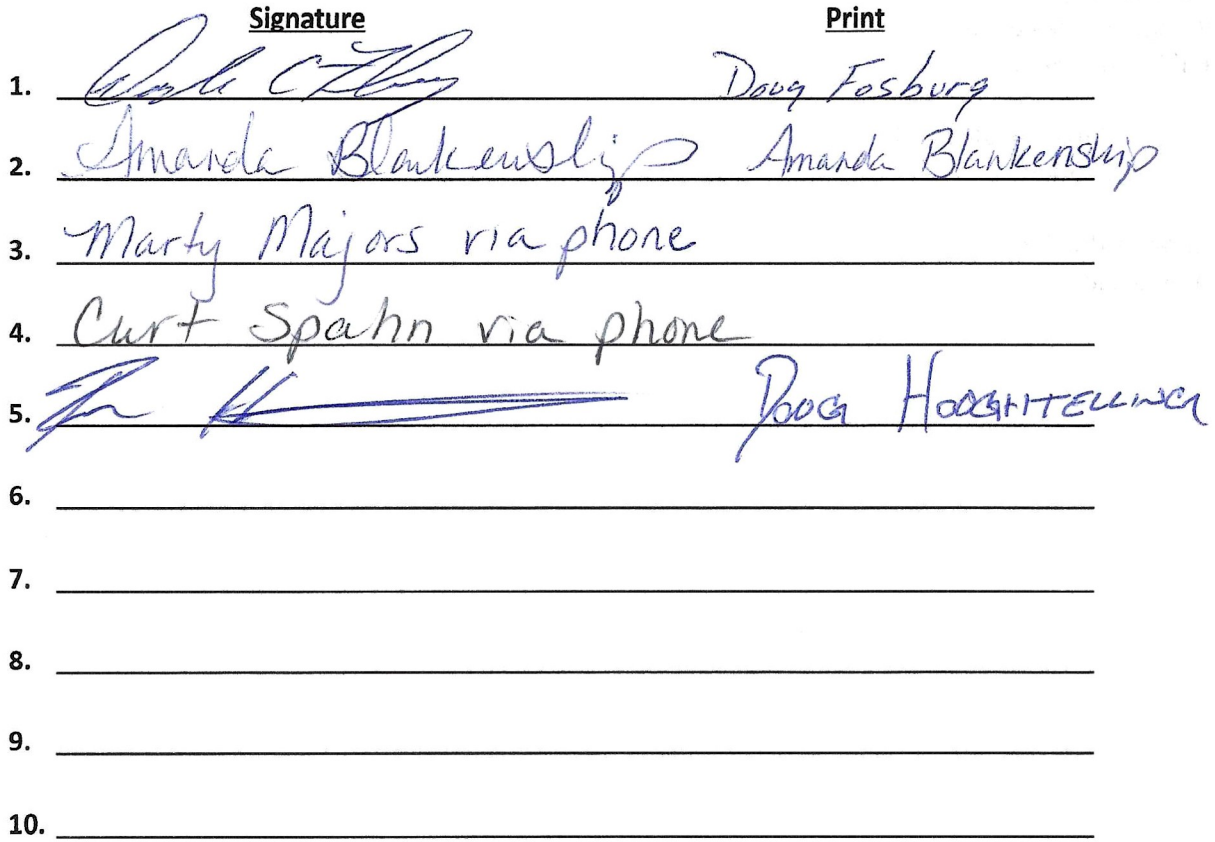 Signature Print
1. Doug Fosburg
2. Amanda Blankenship Amanda Blankenship
3. Marty Majors via phone
4. Curt Spahn via phone
5. Doug
6.
7.
8.
9.
10.